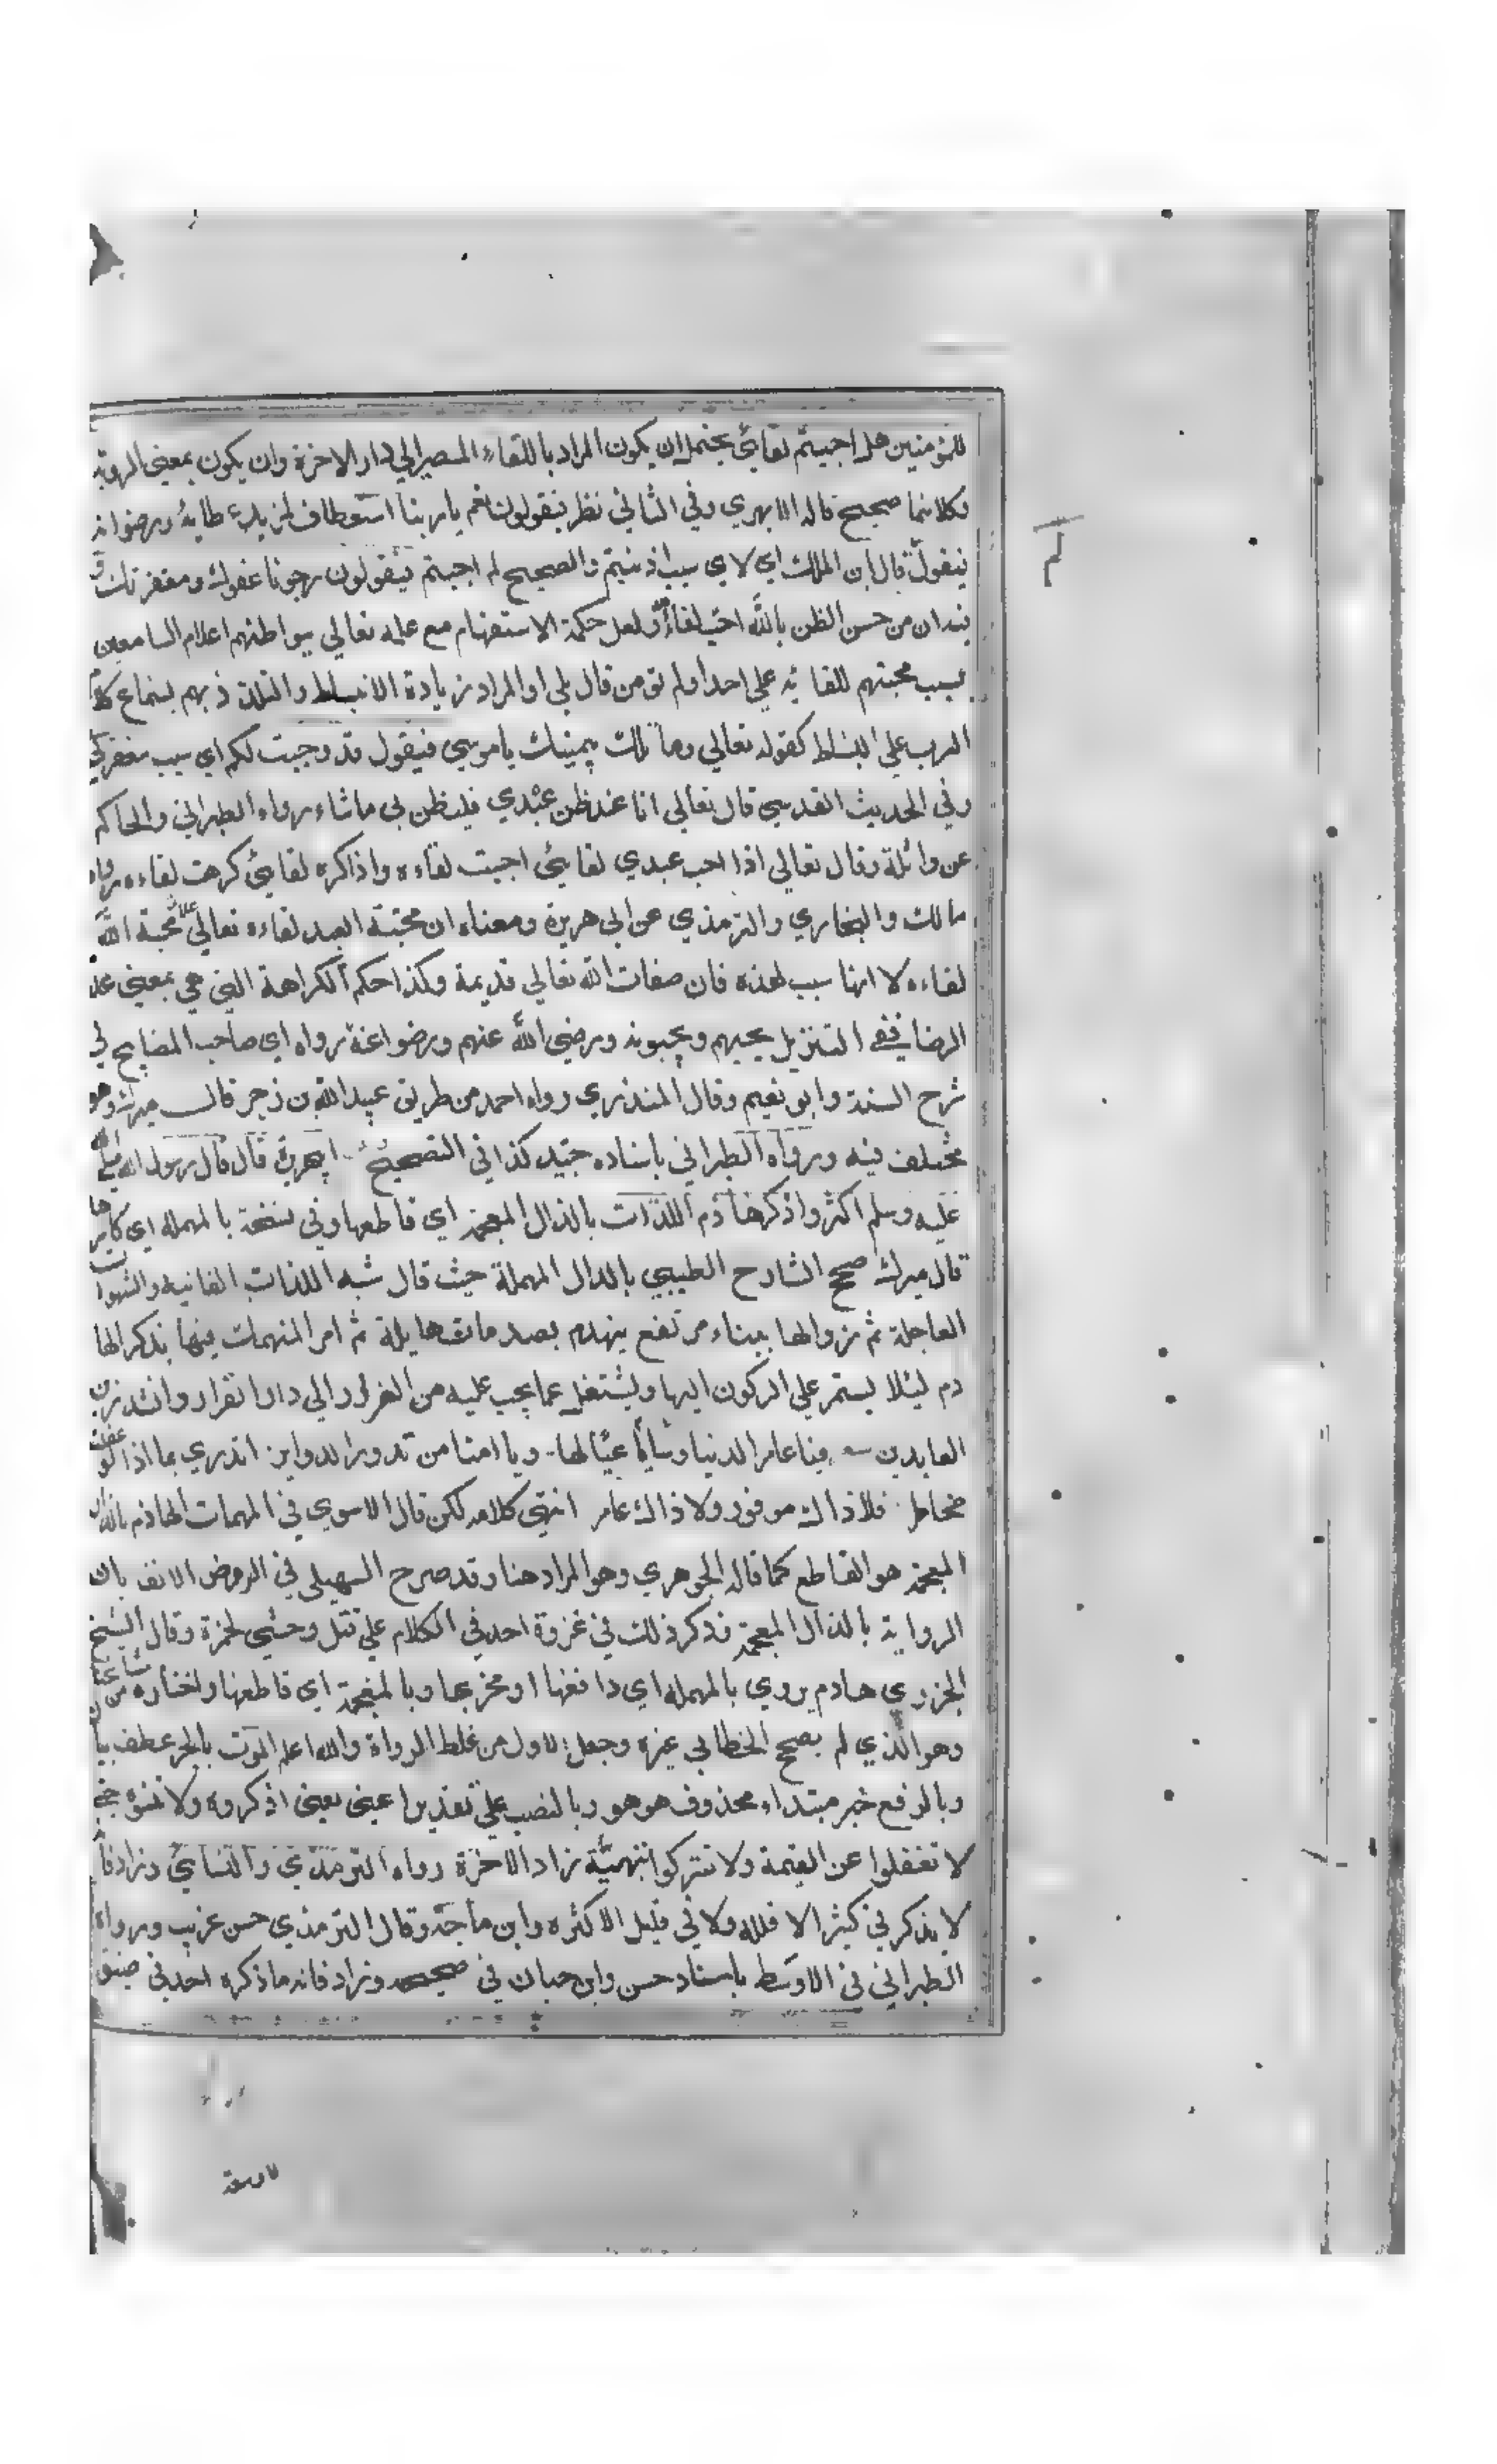 للمؤمنين هل احببتم لقائي يحتمل ان يكون المراد باللقاء المصير الي دار الاخرة وان يكون بمعني الروية
وكلاهما صحيح قاله الابهري وفي الثاني نظر فيقولون نعم يا ربنا استعطاف لمزيد عطاية ورضوانه
فيقول قال ابن الملك اي لاي سبب اذنبتم والصحيح لم احببتم فيقولون رجونا عفوك ومغفرتك
فيه ان من حسن الظن بالله احب لقاءه ولعل حكمة الاستفهام مع علمه تعالي ببواطنهم اعلام السامعين
بسبب محبتهم للقائه علي احد اولم تومن قال بلي او المراد زيادة الانبساط والتلذذ بهم بسماع كلام
الرب علي البساط كقوله تعالي وما تلك بيمينك يا موسي فيقول قد وجبت لكم اي سبب مغفرتي
وفي الحديث القدسي قال تعالي انا عند ظن عبدي فليظن بي ما شاء رواه الطبراني والحاكم
عن واثلة وقال تعالي اذا احب عبدي لقائي احببت لقاءه واذا كره لقائي كرهت لقاءه رواه
مالك والبخاري والترمذي عن ابي هريرة ومعناه ان محبة العبد لقاءه تعالي علامة محبة الله
لقاءه لا انها سبب لهذه فان صفات الله تعالي قديمة وكذا حكم الكراهة التي هي بمعني عدم
الرضا ففي التنزيل يحبهم ويحبونه ورضي الله عنهم ورضوا عنه رواه اي صاحب المصابيح في
شرح السنة وابو نعيم وقال المنذري رواه احمد من طريق عبيد الله بن زحر قال ميرك وهو
مختلف فيه ورواه الطبراني باسناده جيد كذا في التصحيح ابي هريرة قال قال رسول الله صلى الله
عليه وسلم اكثروا ذكر هاذم اللذات بالذال المعجمة اي قاطعها وفي نسخة بالمهملة اي كاسرها
قال ميرك صحح الشارح الطيبي بالدال المهملة حيث قال شبه اللذات الفانيه والشهوات
العاجلة ثم زوالها ببناء مرتفع ينهدم بصدمات هايلة ثم امر المنهمك فيها بذكر الها
دم ليلا يستمر علي الركون اليها ويشتغل عما يجب عليه من الفرار الي دار القرار وانشد زين
العابدين فيا عامر الدنيا وساعيا لها ويا امنا من تدور الدواير اتدري بما اذا لو عقلت
تخاطر فلا ذاك موفور ولا ذاك عامر انتهي كلامه لكن قال الاسنوي في المهمات الهاذم بالذال
المعجمة هو القاطع كما قاله الجوهري وهو المراد هنا وقد صرح السهيلي في الروض الانف بان
الرواية بالذال المعجمة ذكر ذلك في غزوة احد في الكلام علي قتل وحشي لحمزة وقال الشيخ
الجزري هادم يروي بالمهملة اي دافعها او مخربها وبالمعجمة اي قاطعها واختاره من مشايخنا
وهو الذي لم يصحح الخطابي غيره وجعل الاول من غلط الرواة والله اعلم الموت بالجر عطف بيان
وبالرفع خبر مبتداء محذوف هو هو وبالنصب علي تقدير اعني يعني اذكروه ولا تنسوه حتي
لا تغفلوا عن القيمة ولا تتركوا تهيئة زاد الاخرة رواه الترمذي والنسائي وزاد فانه
لا يذكر في كثير الا قلله ولا في قليل الا كثره وابن ماجة وقال الترمذي حسن غريب ورواه
الطبراني في الاوسط باسناد حسن وابن حبان في صحيحه وزاد فانه ما ذكره احد في ضيق